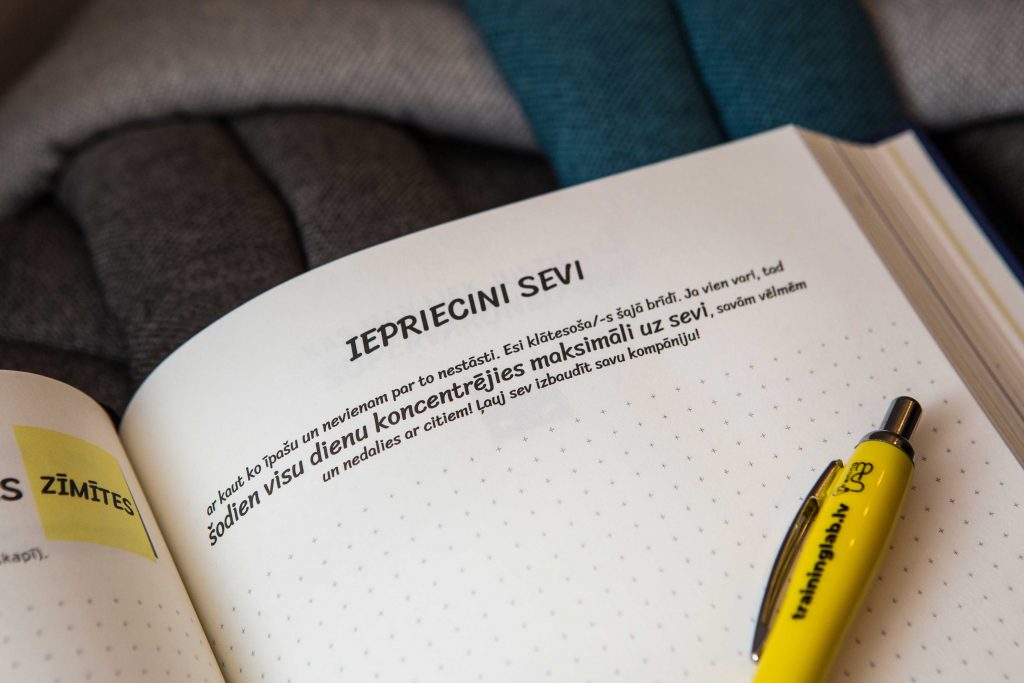 IEPRIECINI SEVI
ar kaut ko īpašu un nevienam par to nestāsti. Esi klātesoša/-s šajā brīdī. Ja vien vari, tad
šodien visu dienu koncentrējies maksimāli uz sevi, savām vēlmēm
un nedalies ar citiem! Ļauj sev izbaudīt savu kompāniju!
ZĪMĪTES
skapī).
traininglab.lv